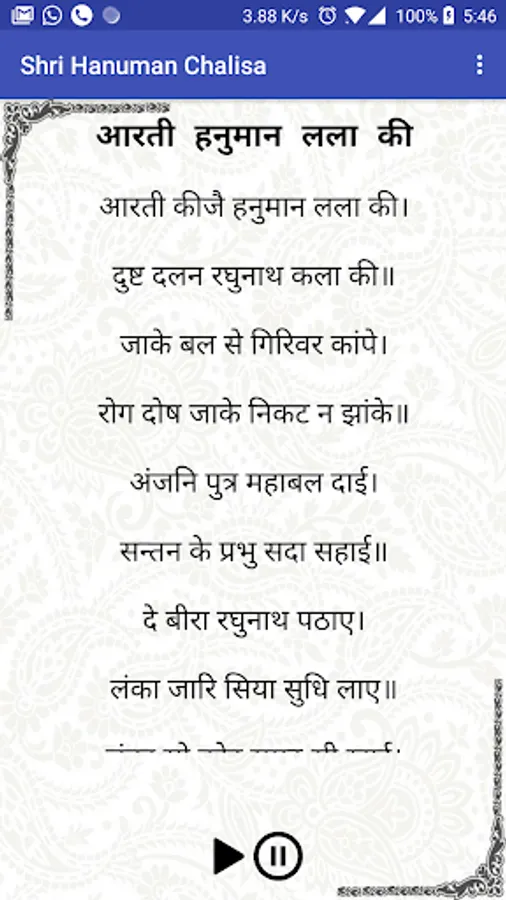 3.88 K/s 100% 5:46
Shri Hanuman Chalisa
आरती हनुमान लला की
आरती कीजै हनुमान लला की।
दुष्ट दलन रघुनाथ कला की॥
जाके बल से गिरिवर कांपे।
रोग दोष जाके निकट न झांके॥
अंजनि पुत्र महाबल दाई।
सन्तन के प्रभु सदा सहाई॥
दे बीरा रघुनाथ पठाए।
लंका जारि सिया सुधि लाए॥